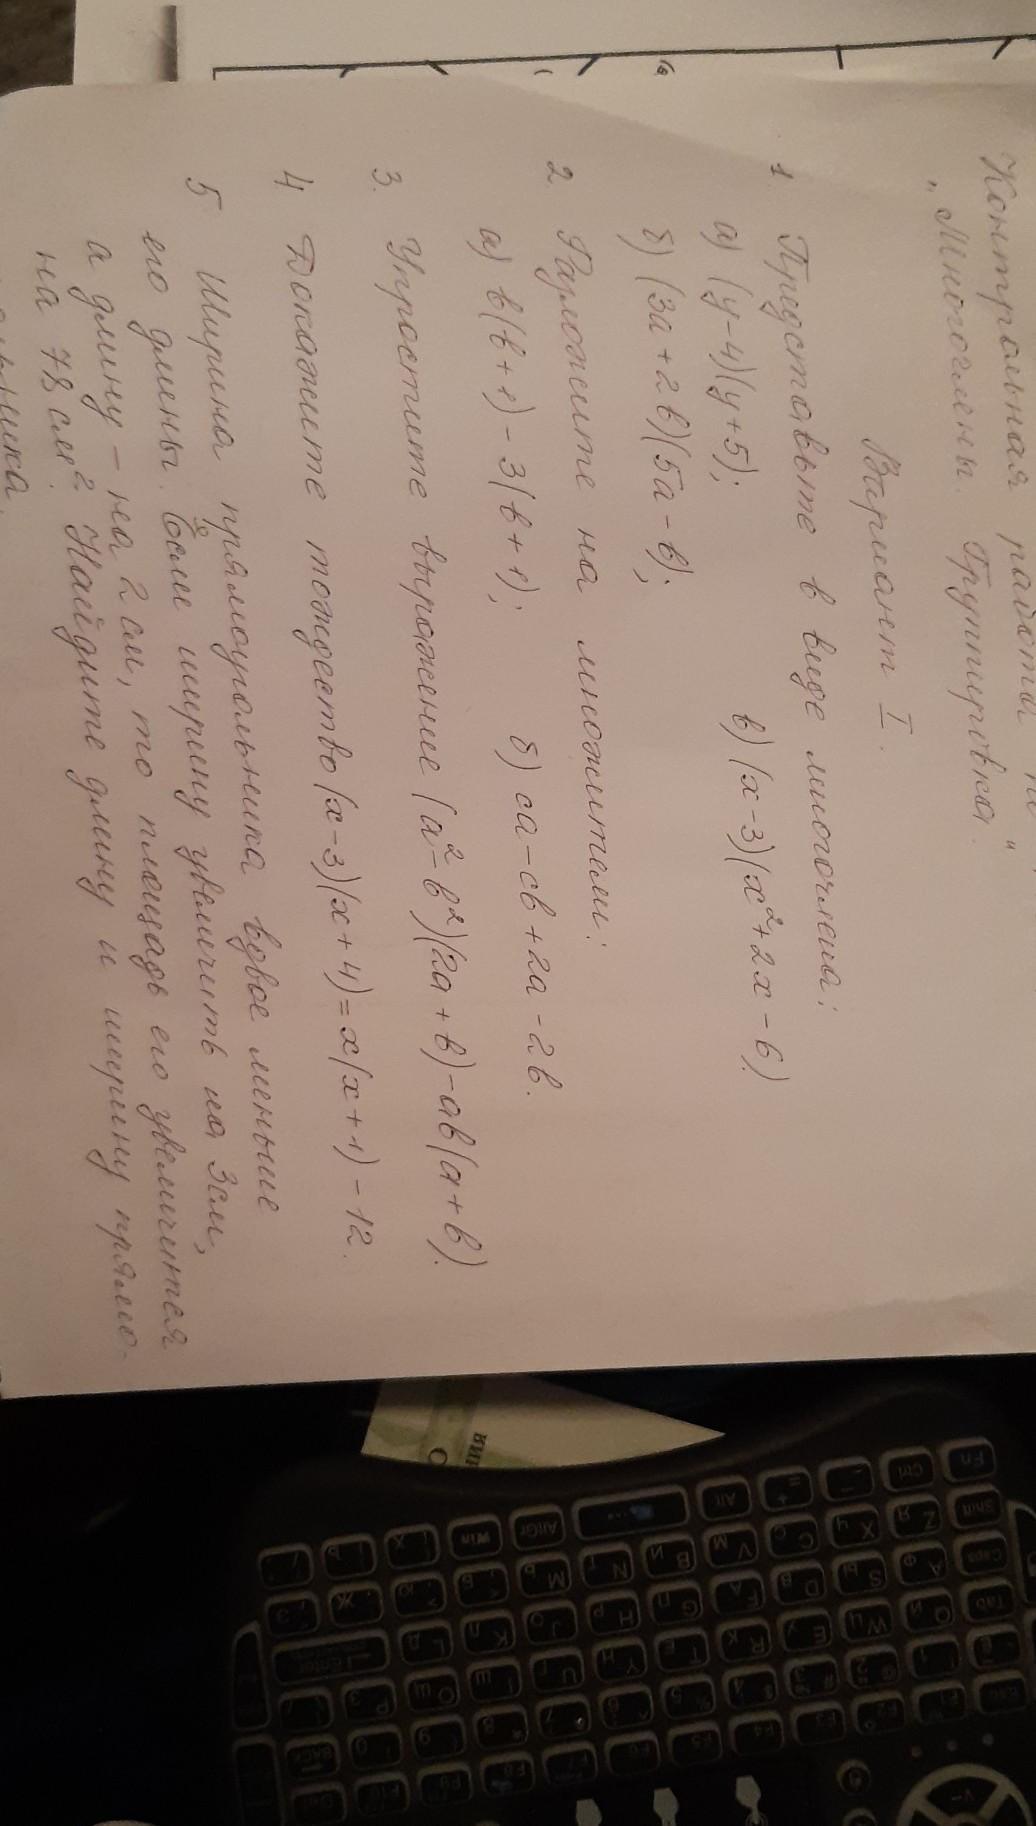 Контрольная работа по
„Многочлены. Группировка."
Вариант I.
1. Представьте в виде многочлена:
а) (y-4)(y+5); в) (x-3)(x²+2x-6)
б) (3a+2в)(5a-в);
2 Разложите на множители:
а) в(в+1)-3(в+1); б) ca-cв+2a-2в.
3. Упростите выражение (a²-в²)(2a+в)-aв(a+в).
4 Докажите тождество (x-3)(x+4)=x(x+1)-12.
5 Ширина прямоугольника вдвое меньше
его длины. Если ширину увеличить на 3см,
а длину - на 2см, то площадь его увеличится
на 78 см². Найдите длину и ширину прямо-